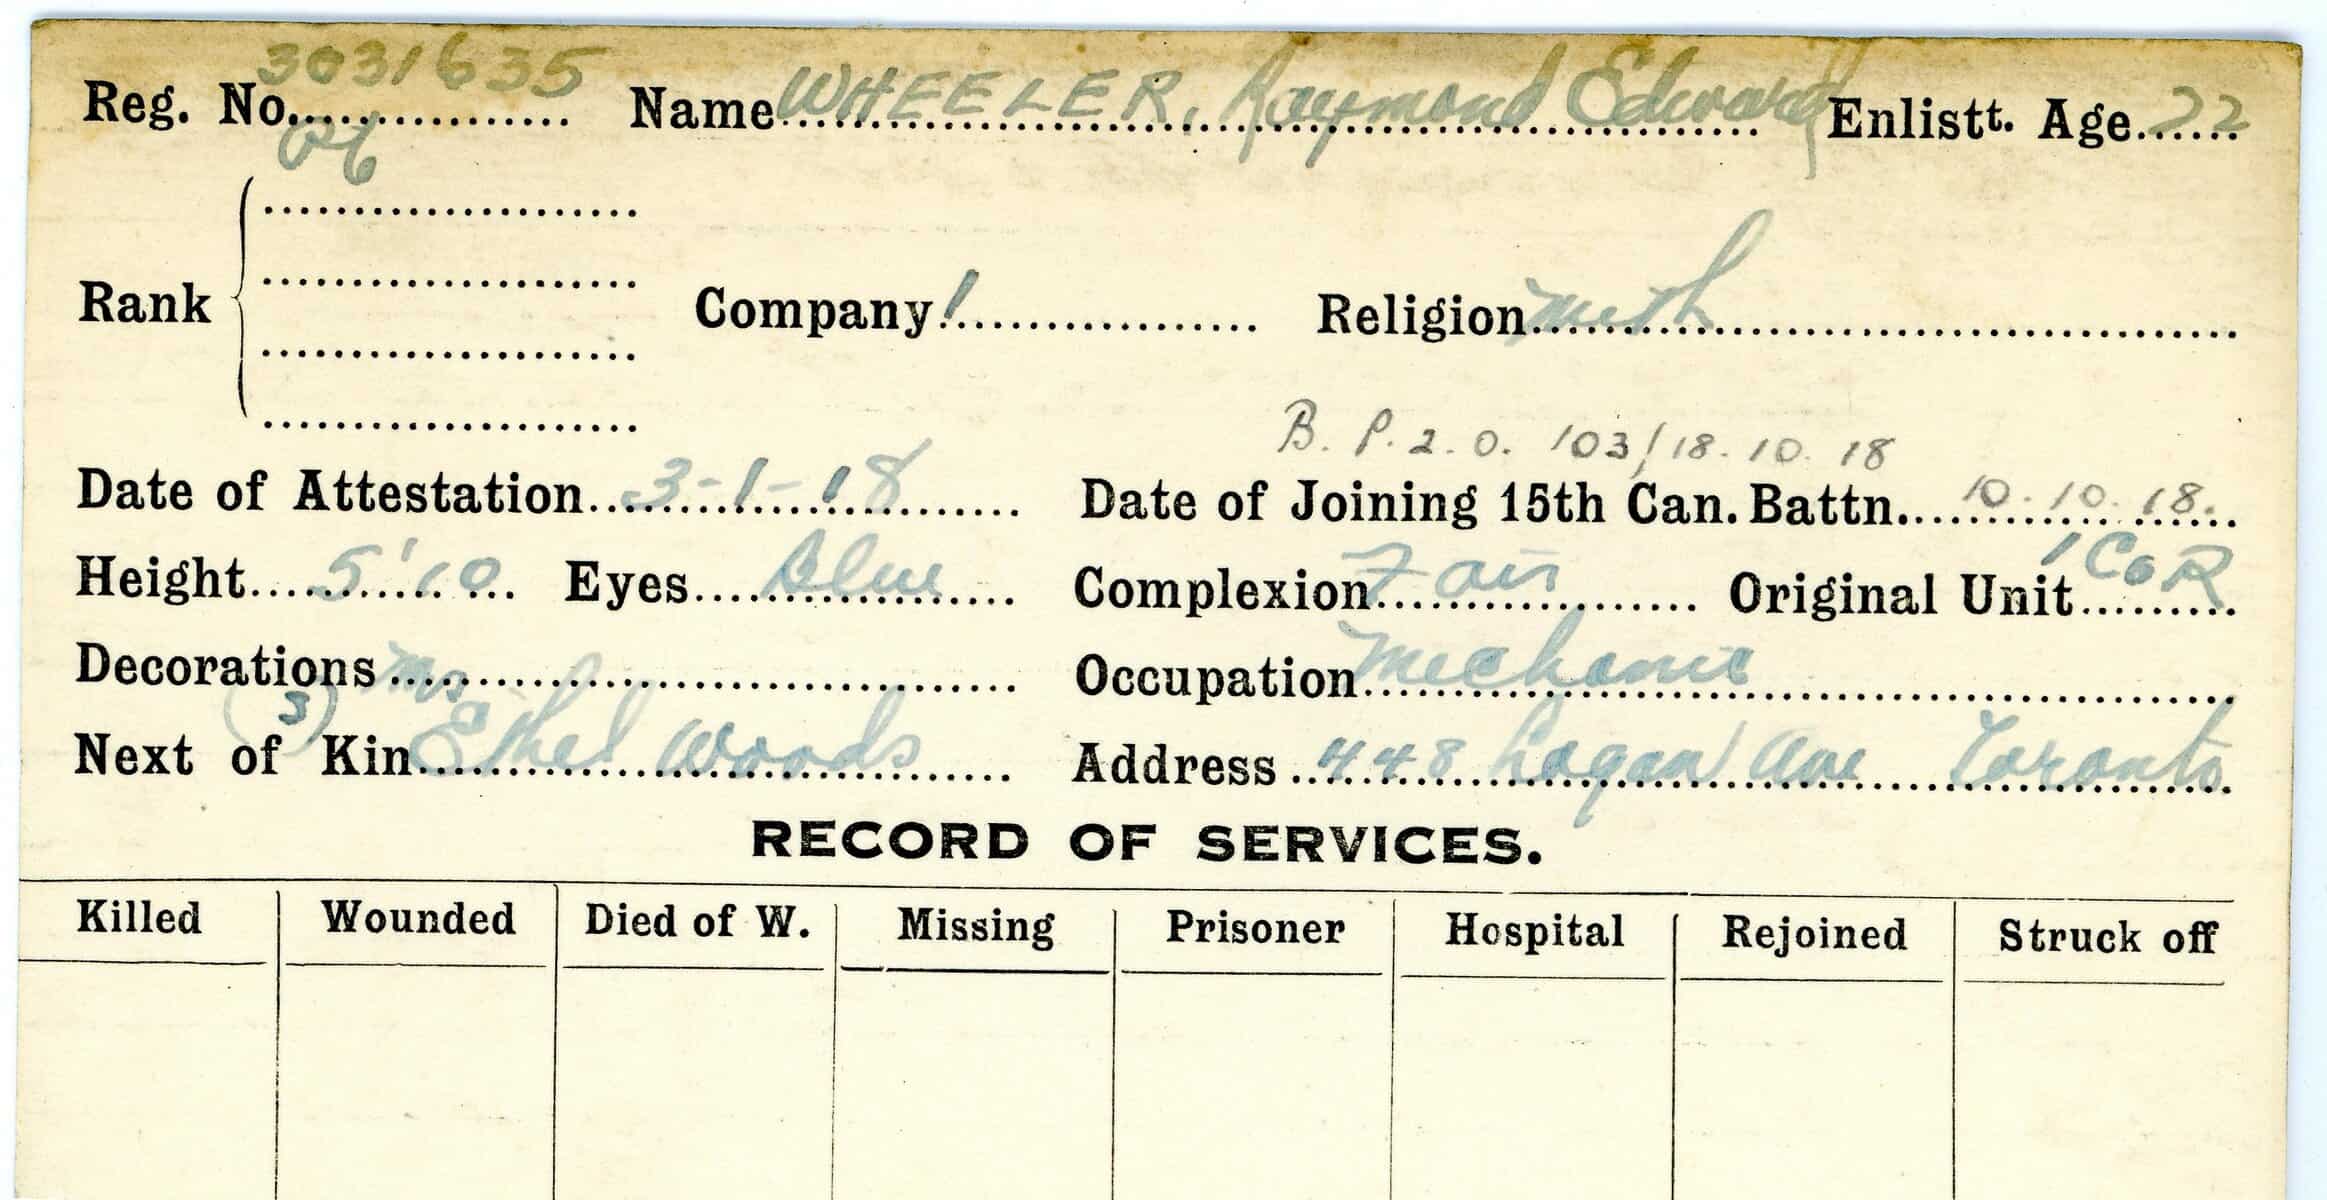 Reg. No. 3031635 Name WHEELER, Raymond Edward Enlistt. Age 22
Pte
Rank Company 1 Religion Meth
B. P. 2. O. 103/18.10.18
Date of Attestation 3-1-18 Date of Joining 15th Can. Battn. 10.10.18.
Height 5'10 Eyes Blue Complexion Fair Original Unit 1 CoR
Decorations Occupation Mechanic
(3) Mrs
Next of Kin Ethel Woods Address 448 Logan Ave Toronto
RECORD OF SERVICES.
Killed Wounded Died of W. Missing Prisoner Hospital Rejoined Struck off